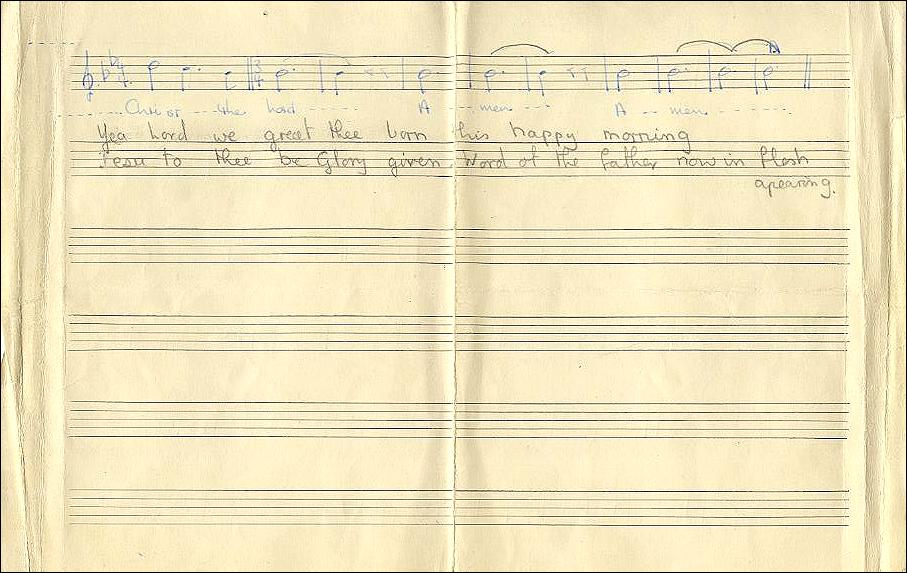 Christ the Lord A men A men
Yea Lord we greet thee born this happy morning
Jesu to thee be Glory given Word of the father now in flesh
apearing.